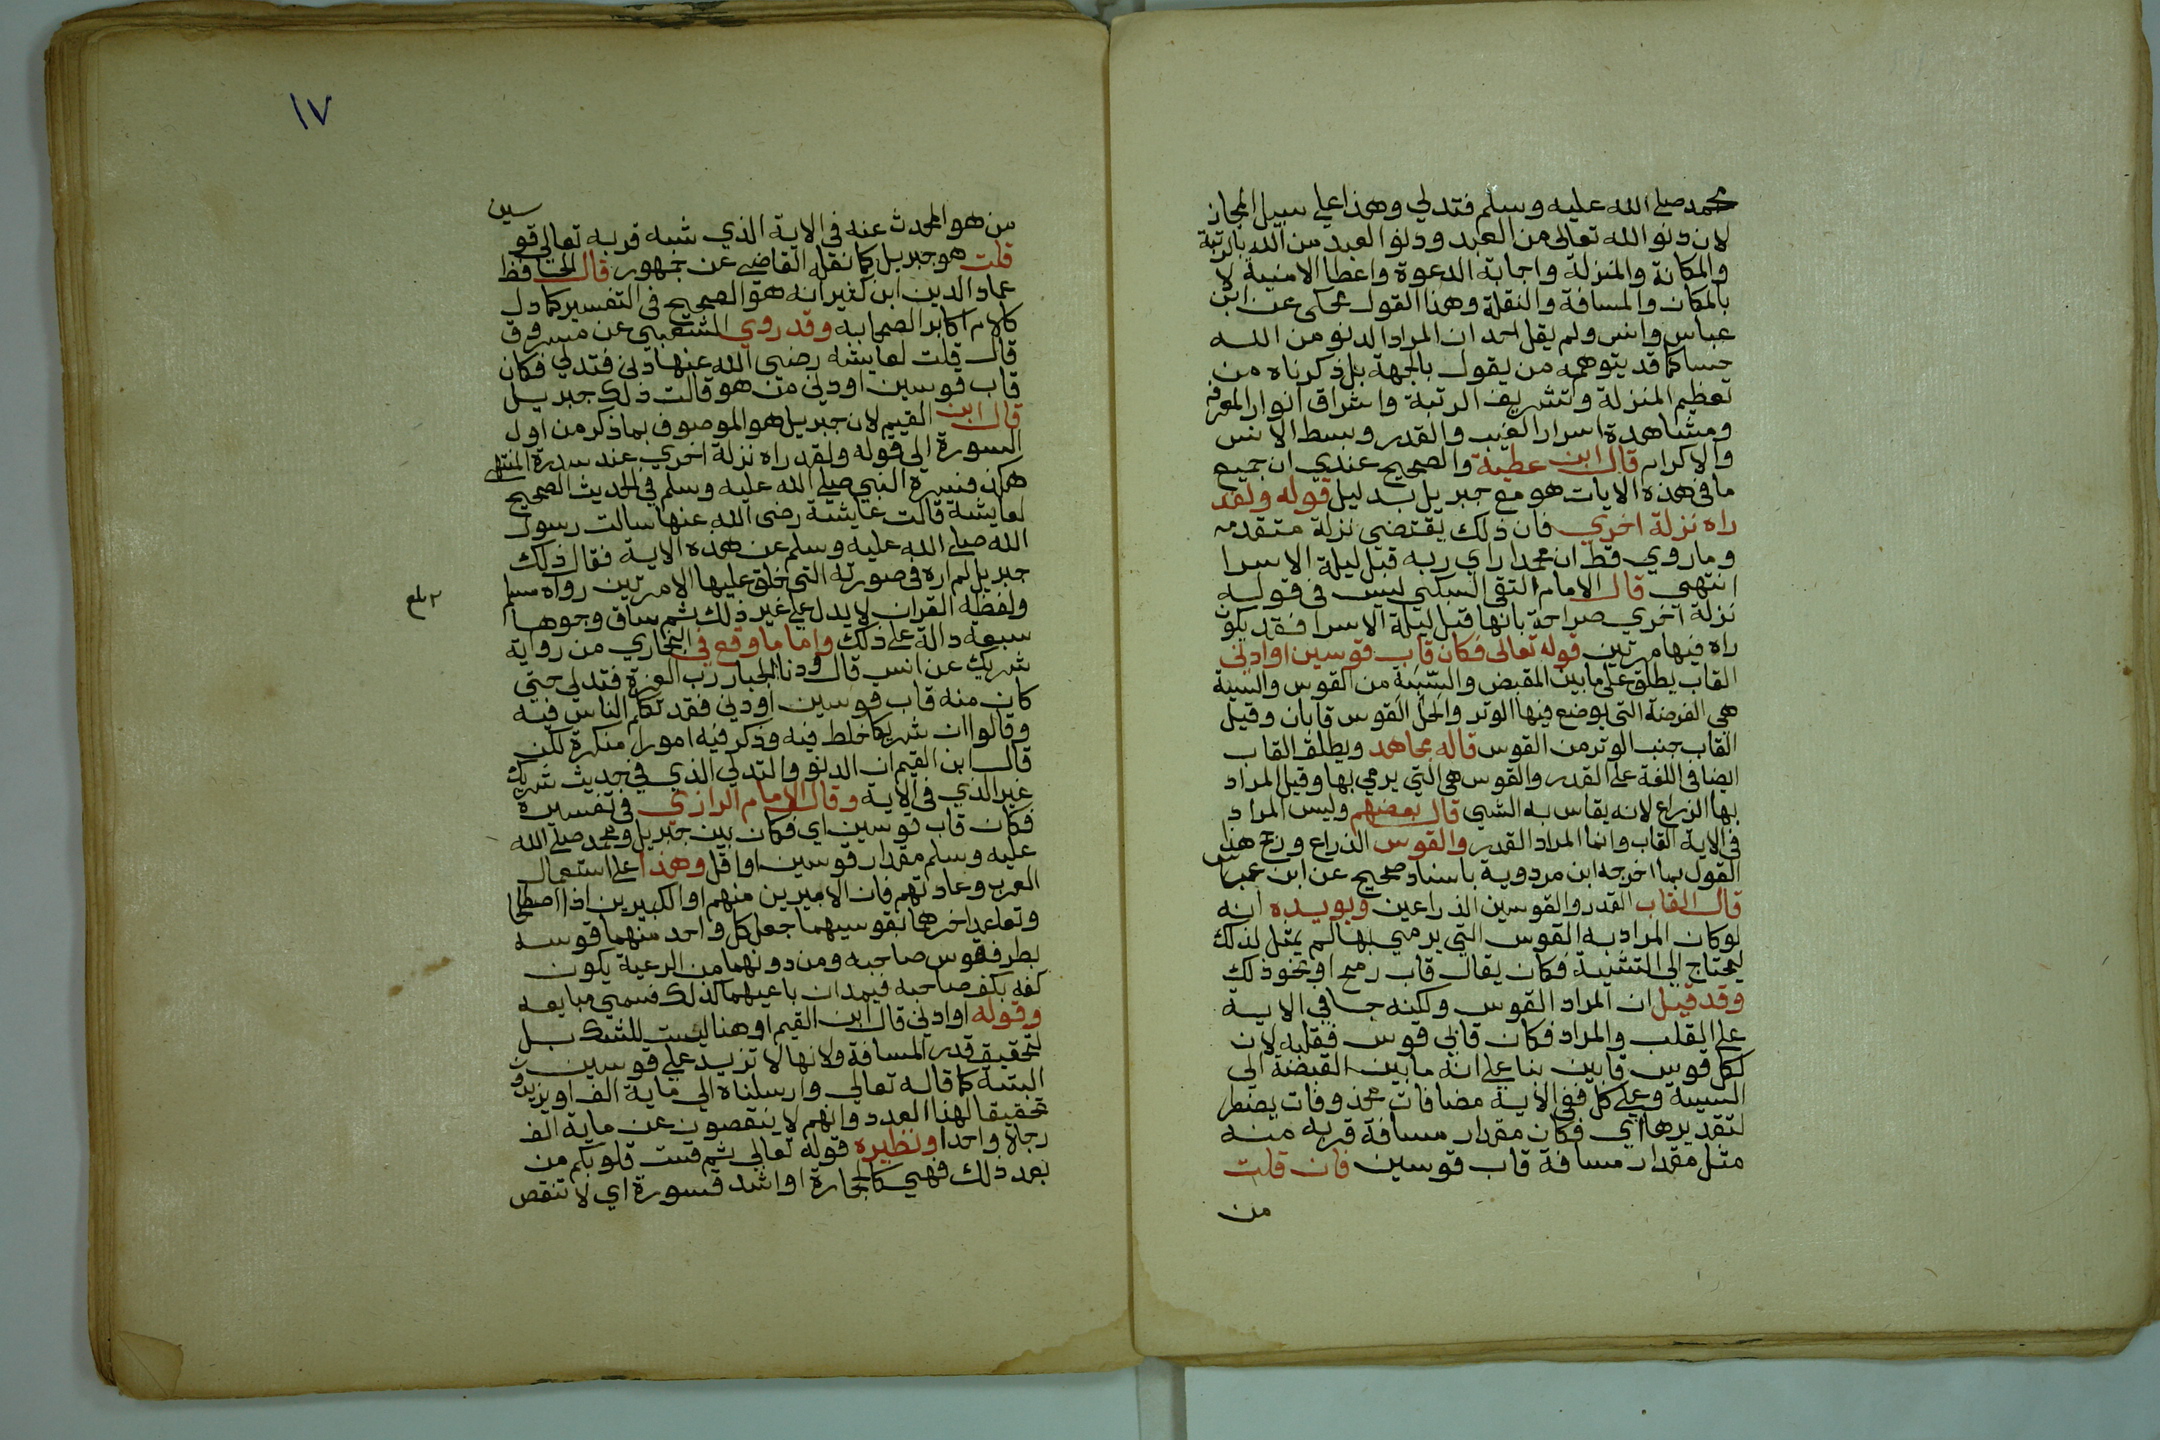 محمد صلي الله عليه وسلم فتدلي وهذا علي سبيل المجاز
لان دنو الله تعالى من العبد ودنو العبد من الله بالرتبة
والمكانة والمنزلة واجابة الدعوة واعطا الامنية لا
بالمكان والمسافة والنقلة وهذا القول محكى عن ابن
عباس وانس ولم يقل احد ان المراد الدنو من الله
حسا كما قد يتوهمه من يقول بالجهة بل ذكرناه من
تعظيم المنزلة وتشريف الرتبة واشراق انوار المعرفة
ومشاهدة اسرار الغيب والقدر وبسط الانس
والاكرام قال ابن عطية والصحيح عندي ان جميع
ما في هذه الايات هو مع جبريل بدليل قوله ولقد
راه نزلة اخري فان ذلك يقتضي نزلة متقدمه
وما روي قط ان محمدا راي ربه قبل ليلة الاسرا
انتهي قال الامام التقي السبكي ليس في قوله
نزلة اخري صراحة بانها قبل ليلة الاسرا فقد يكون
راه فيها مرتين قوله تعالى فكان قاب قوسين او ادني
القاب يطلق على ما بين المقبض والسية من القوس والسية
هي الفرضة التي يوضع فيها الوتر ولكل القوس قابان وقيل
القاب جنب الوتر من القوس قاله مجاهد ويطلق القاب
ايضا في اللغة على القدر والقوس هي التي يرمي بها وقيل المراد
بها الذراع لانه يقاس به الشي قال بعضهم وليس المراد
في الاية القاب وانما المراد القدر والقوس الذراع ورجح هذا
القول بما اخرجه ابن مردوية باسناد صحيح عن ابن عباس
قال القاب القدر والقوسين الذراعين ويويده انه
لو كان المراد به القوس التي يرمي بها لم يمثل لذلك
ليحتاج الي التثنية فكان يقال قاب رمح او نحو ذلك
وقد قيل ان المراد القوس ولكنه جا في الاية
علي القلب والمراد فكان قابي قوس فقلبه لان
لكل قوس قابين بنا علي انه ما بين القبضة الي
السية وعلي كل ففي الاية مضافات محذوفات يضطر
لتقديرها اي فكان مقدار مسافة قربه منه
مثل مقدار مسافة قاب قوسين فان قلت
من
١٧
سين
من هو المحدث عنه في الاية الذي شبه قربه تعالى قو
قلت هو جبريل كما نقله القاضي عن جمهور قال الحافظ
عماد الدين ابن كثير انه هو الصحيح في التفسير كما دل
كلام اكابر الصحابه وقد روي الشعبي عن مسروق
قال قلت لعايشه رضي الله عنها دني فتدلي فكان
قاب قوسين او دني من هو قالت ذلك جبريل
قال ابن القيم لان جبريل هو الموصوف بما ذكر من اول
السورة الي قوله ولقد راه نزلة اخري عند سدرة المنتهي
هكذا فسره النبي صلي الله عليه وسلم في الحديث الصحيح
لعايشة قالت عايشة رضي الله عنها سالت رسول
الله صلي الله عليه وسلم عن هذه الاية فقال ذلك
جبريل لم اره في صورته التي خلق عليها الا مرتين رواه مسلم
٢ بلغ
ولفظه القران لا يدل علي غير ذلك ثم ساق وجوها
سبعه دالة على ذلك واما ما وقع في البخاري من رواية
شريك عن انس قال ودنا الجبار رب العزة فتدلي حتي
كان منه قاب قوسين او دني فقد تكلم الناس فيه
وقالوا ان شريكا خلط فيه وذكر فيه امورا منكرة لكن
قال ابن القيم ان الدنو والتدلي الذي في حديث شريك
غير الذي في الاية وقال الامام الرازي في تفسيره
فكان قاب قوسين اي فكان بين جبريل ومحمد صلي الله
عليه وسلم مقدار قوسين او اقل وهذا على استعمال
العرب وعادتهم فان الاميرين منهم او الكبيرين اذا اصطلحا
وتعاهدا خرجا بقوسيهما جعل كل واحد منهما قوسه
بطرف قوس صاحبه ومن دونهما من الرعية يكون
كفه بكف صاحبه فيمدان باعيهما لذلك فسمي مبايعه
وقوله او ادني قال ابن القيم او هنا ليست للشك بل
لتحقيق قدر المسافة ولانها لا تزيد علي قوسين
البتة كما قاله تعالي وارسلناه الي ماية الف او يزيدون
تحقيقا لهذا العدد وانهم لا ينقصون عن ماية الف
رجلا واحدا ونظيره قوله تعالي ثم قست قلوبكم من
بعد ذلك فهي كالحجارة او اشد قسورة اي لا تنقص